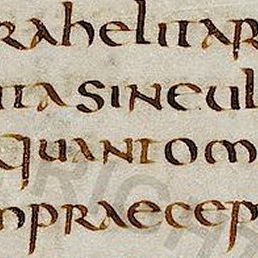 rahelitar
itasineul
quantom
npraecep